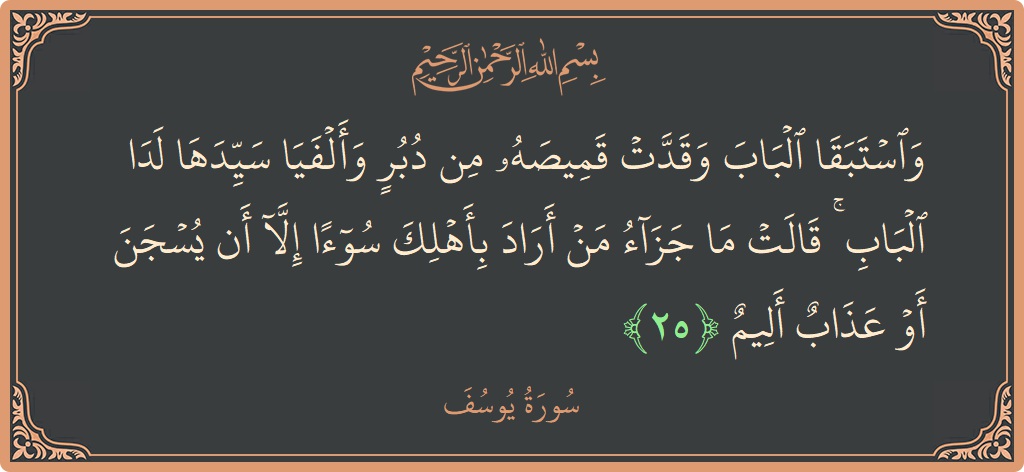 بِسْمِ اللهِ الرَّحْمٰنِ الرَّحِيْمِ
وَٱسۡتَبَقَا ٱلۡبَابَ وَقَدَّتۡ قَمِيصَهُۥ مِن دُبُرٖ وَأَلۡفَيَا سَيِّدَهَا لَدَا
ٱلۡبَابِۚ قَالَتۡ مَا جَزَآءُ مَنۡ أَرَادَ بِأَهۡلِكَ سُوٓءًا إِلَّآ أَن يُسۡجَنَ
أَوۡ عَذَابٌ أَلِيمٞ ﴿٢٥﴾
سُورَةُ يُوسُفَ